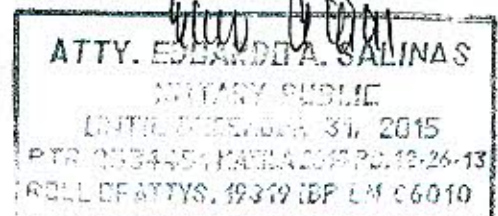 ATTY. EDUARDO A. SALINAS
NOTARY PUBLIC
UNTIL DECEMBER 31, 2015
PTR MANILA 12-26-13
ROLL OF ATTYS. 19319 IBP LM 06010